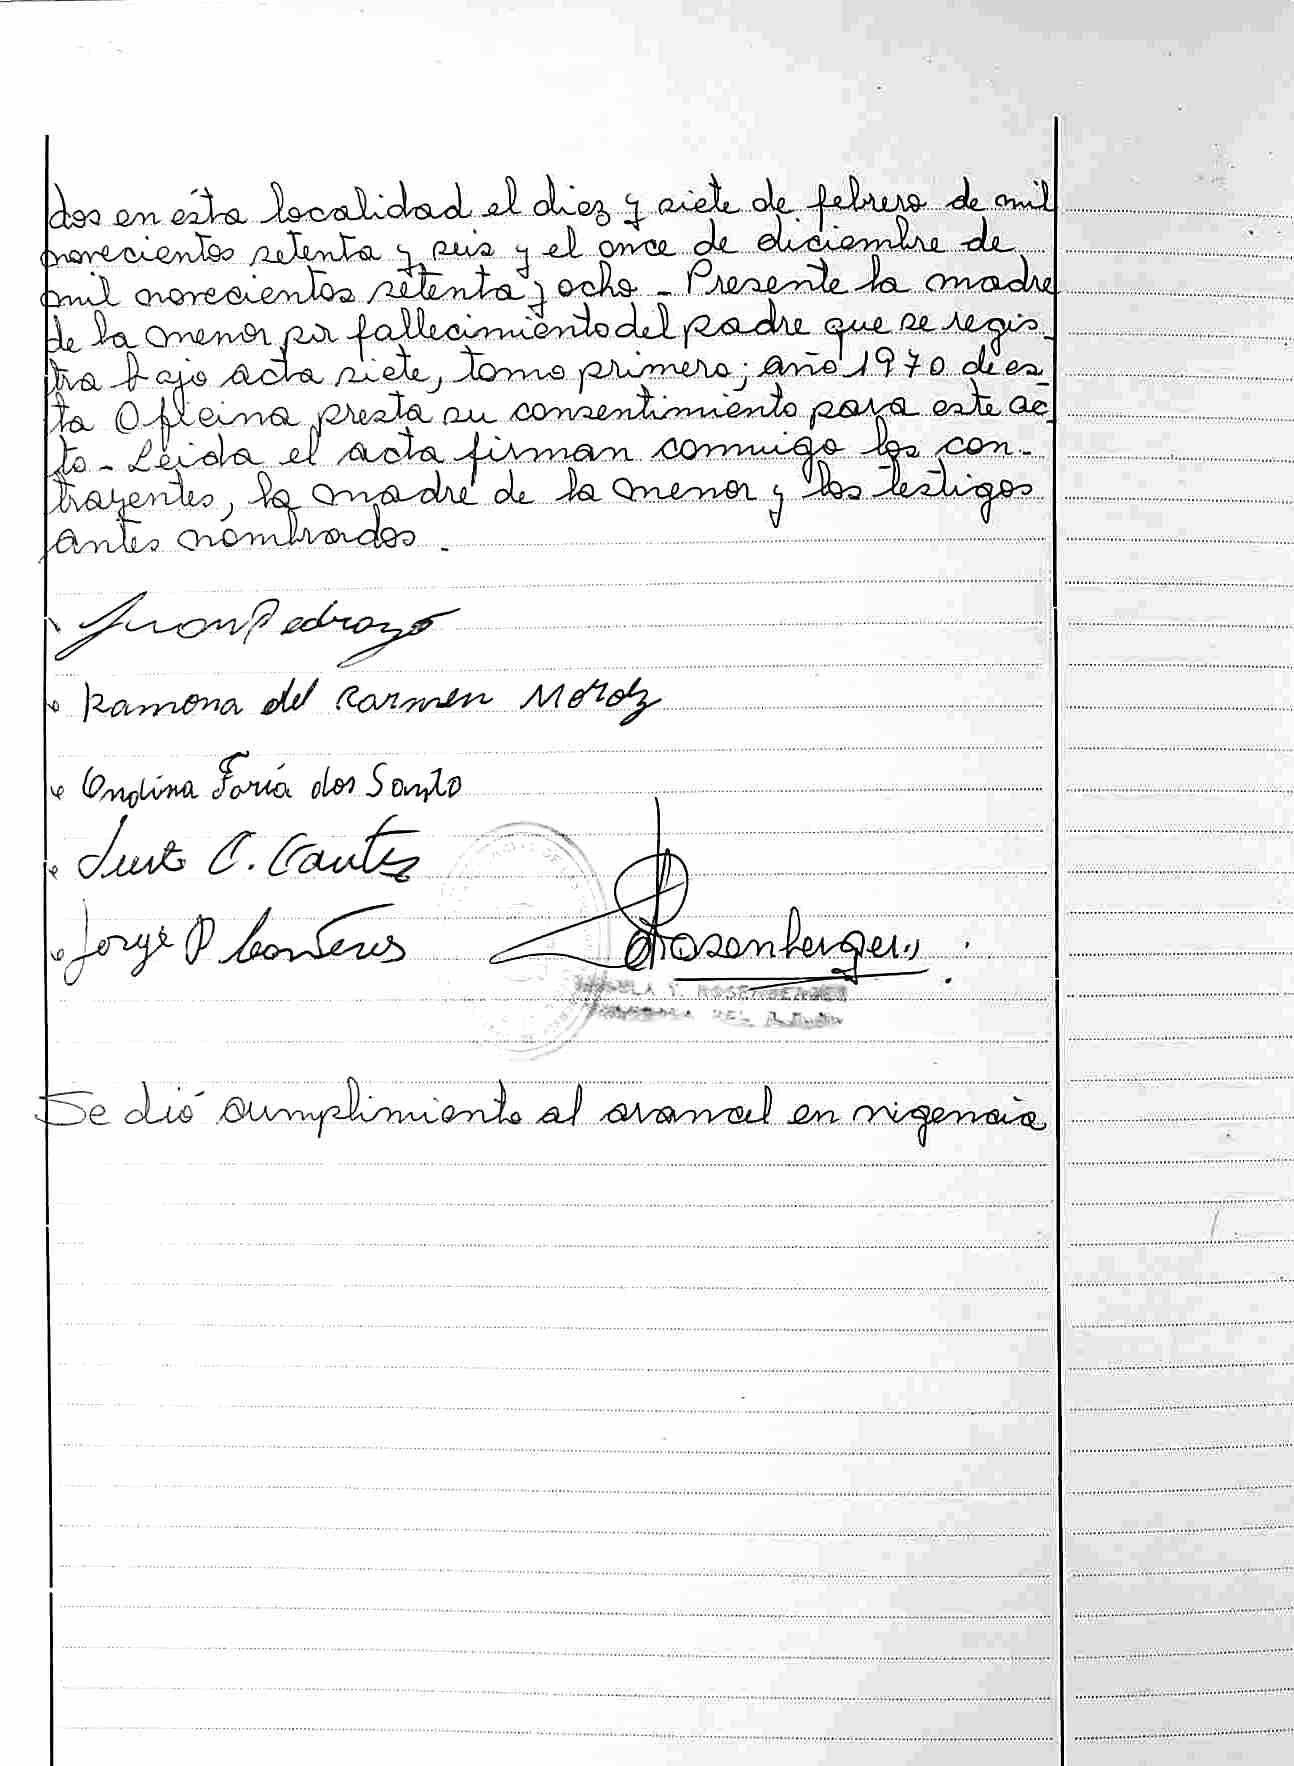 dos en ésta localidad el diez y siete de febrero de mil
novecientos setenta y seis y el once de diciembre de
mil novecientos setenta y ocho - Presente la madre
de la menor por fallecimiento del padre que se regis
tra bajo acta siete, tomo primero; año 1970 de es-
ta Oficina presta su consentimiento para este ac
to - Leida el acta firman conmigo los con-
trayentes, la madre de la menor y los testigos
antes nombrados.
Juan Pedrozo
Ramona del Carmen Moroz
Ondina Foria dos Santo
C.
Jorge P
Rosenberger
ROSENBERGER
Se dió cumplimiento al arancel en vigencia